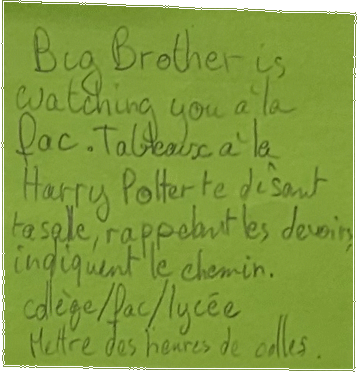 Big Brother is
watching you à la
fac. Tableaux à la
Harry Potter te disant
ta salle, rappelant les devoirs,
indiquent le chemin.
colège/fac/lycée
Mettre des heures de colles.